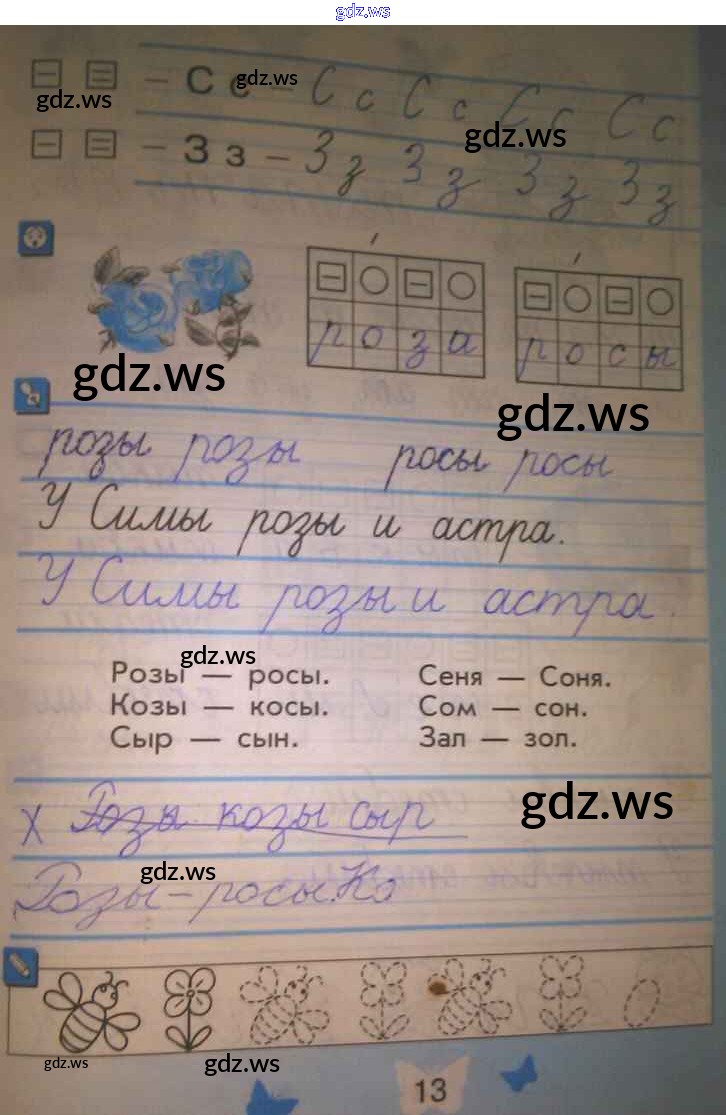 gdz.ws
– С с – С с С с С с С с
gdz.ws
gdz.ws
gdz.ws
– З з – З з З з З з З з
р о з а
р о с ы
gdz.ws
gdz.ws
розы розы росы росы
У Симы розы и астра.
У Симы розы и астра.
gdz.ws
Розы — росы. Сеня — Соня.
Козы — косы. Сом — сон.
Сыр — сын. Зал — зол.
gdz.ws
х Розы козы сыр
gdz.ws
Розы – росы. Ко
gdz.ws
gdz.ws
13